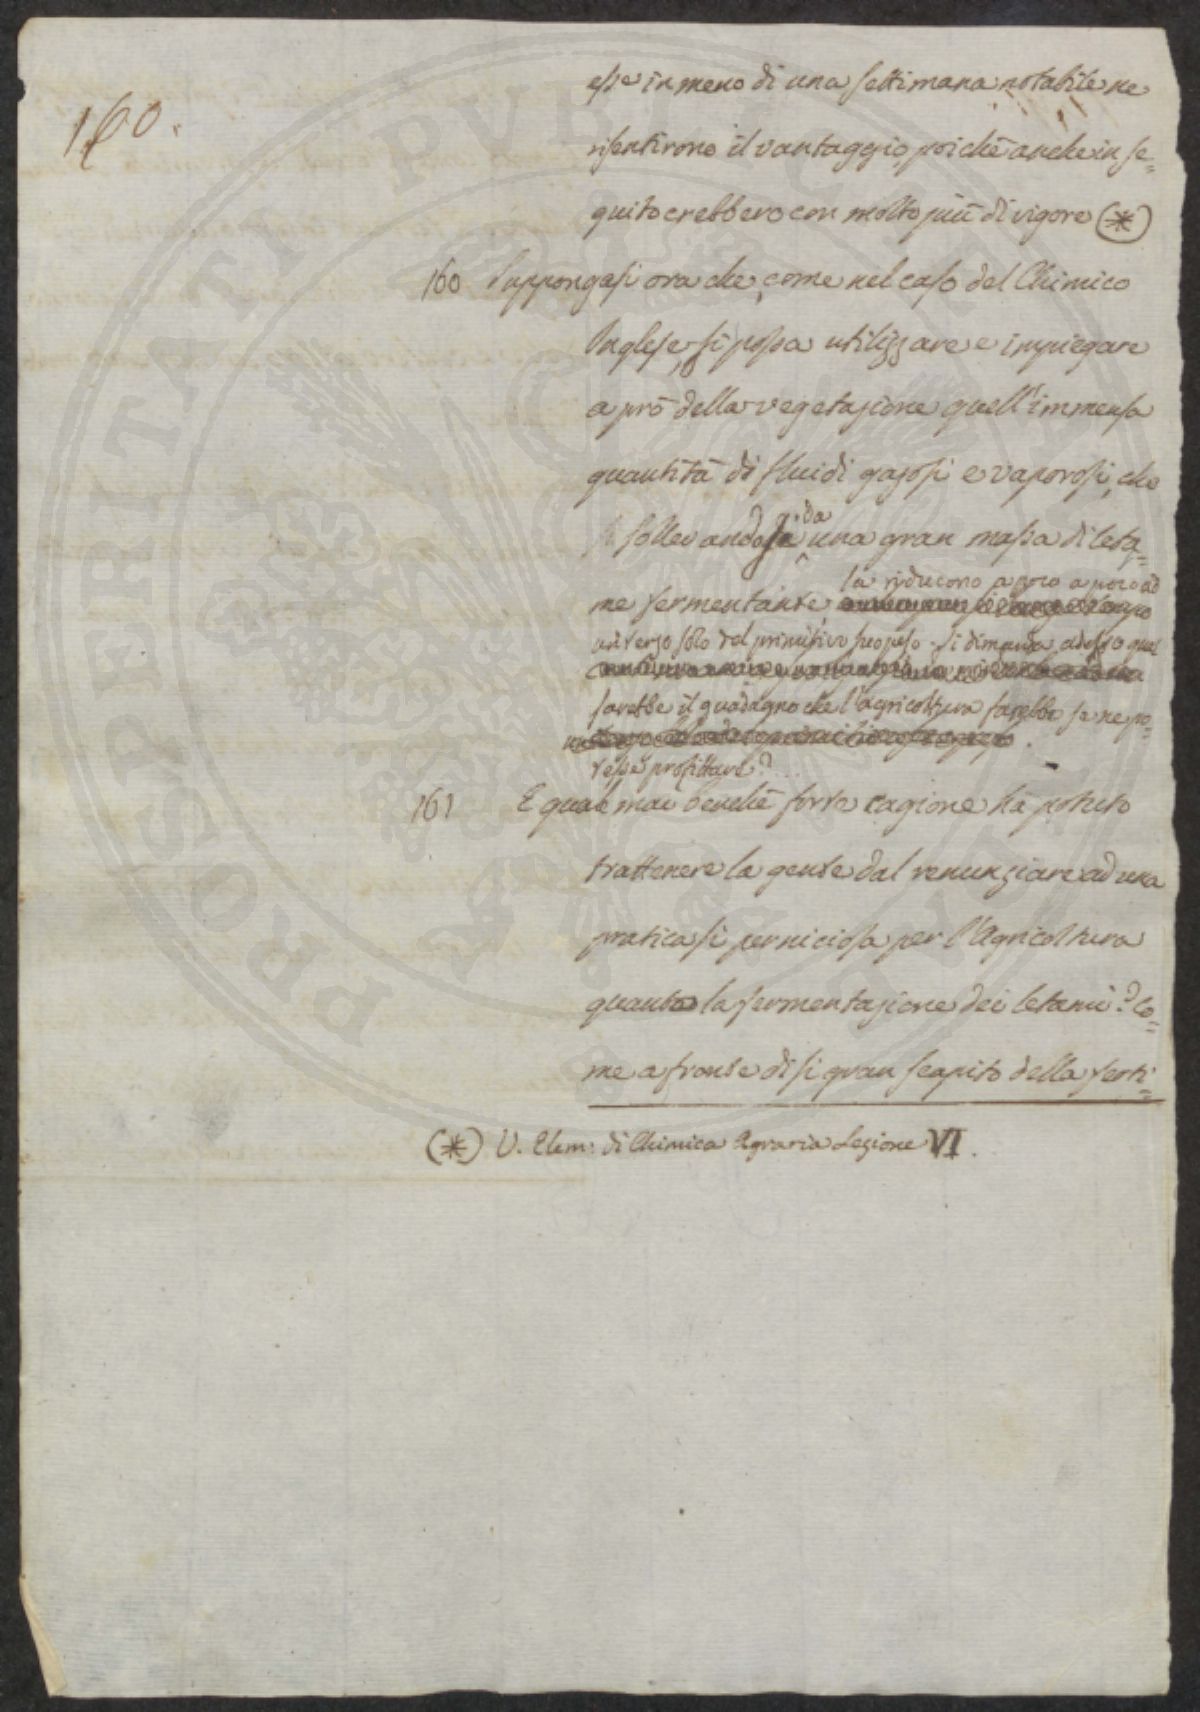 160.
esse in meno di una settimana notabile ne
risentirono il vantaggio, poichè anche in se=
quito crebbero con molto più di vigore (*)
160 Suppongasi ora che, come nel caso del Chimico
Inglese, si possa utilizzare e impiegare
a prò della vegetazione quell'immensa
quantità di fluidi gazosi e vaporosi, che
sollevandosi da una gran massa di leta=
me fermentante, la riducono a poco a poco ad
un terzo solo del primitivo suo peso. Si dimanda adesso qual
sarebbe il guadagno che l'agricoltura farebbe se ne po=
tesse profittare?
161 E quale mai benchè forte cagione hà potuto
trattenere la gente dal renunziare ad una
pratica sì perniciosa per l'Agricoltura
quanto la fermentazione dei letami? Co=
me a fronte di sì gran scapito della ferti=
(*) V. Elem: di Chimica Agraria Lezione VI.
PROSPERITATI PVBLICAE